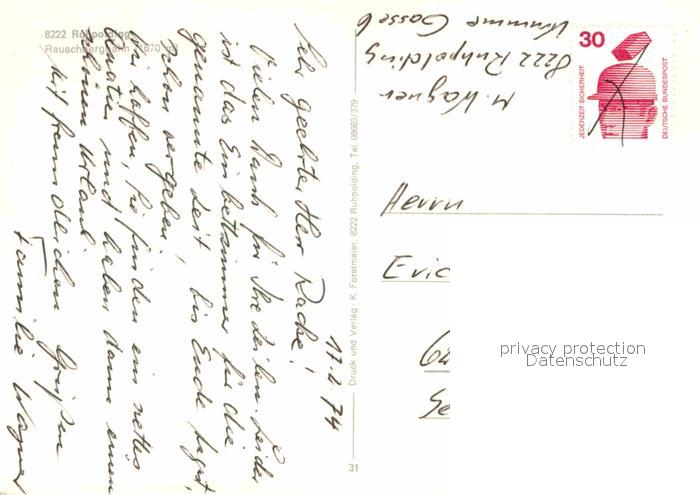 8222 Ruhpolding
Rauschbergbahn (1670 m)
17.2.74
Sehr geehrter Herr Racke!
Vielen Dank für Ihre Zeilen. Leider
ist das Einbettzimmer für die
genannte Zeit bis Ende Sept.
schon vergeben,
Wir hoffen, Sie finden ein nettes
Quartier und haben dann einen
schönen Urlaub.
Mit freundlichen Grüßen
Familie Wagner
Druck und Verlag: K. Forstmaier, 8222 Ruhpolding, Tel. 08663/379
31
M. Wagner
8222 Ruhpolding
Krumme Gasse 6
30
JEDERZEIT SICHERHEIT
DEUTSCHE BUNDESPOST
Herrn
Eric
privacy protection
Datenschutz